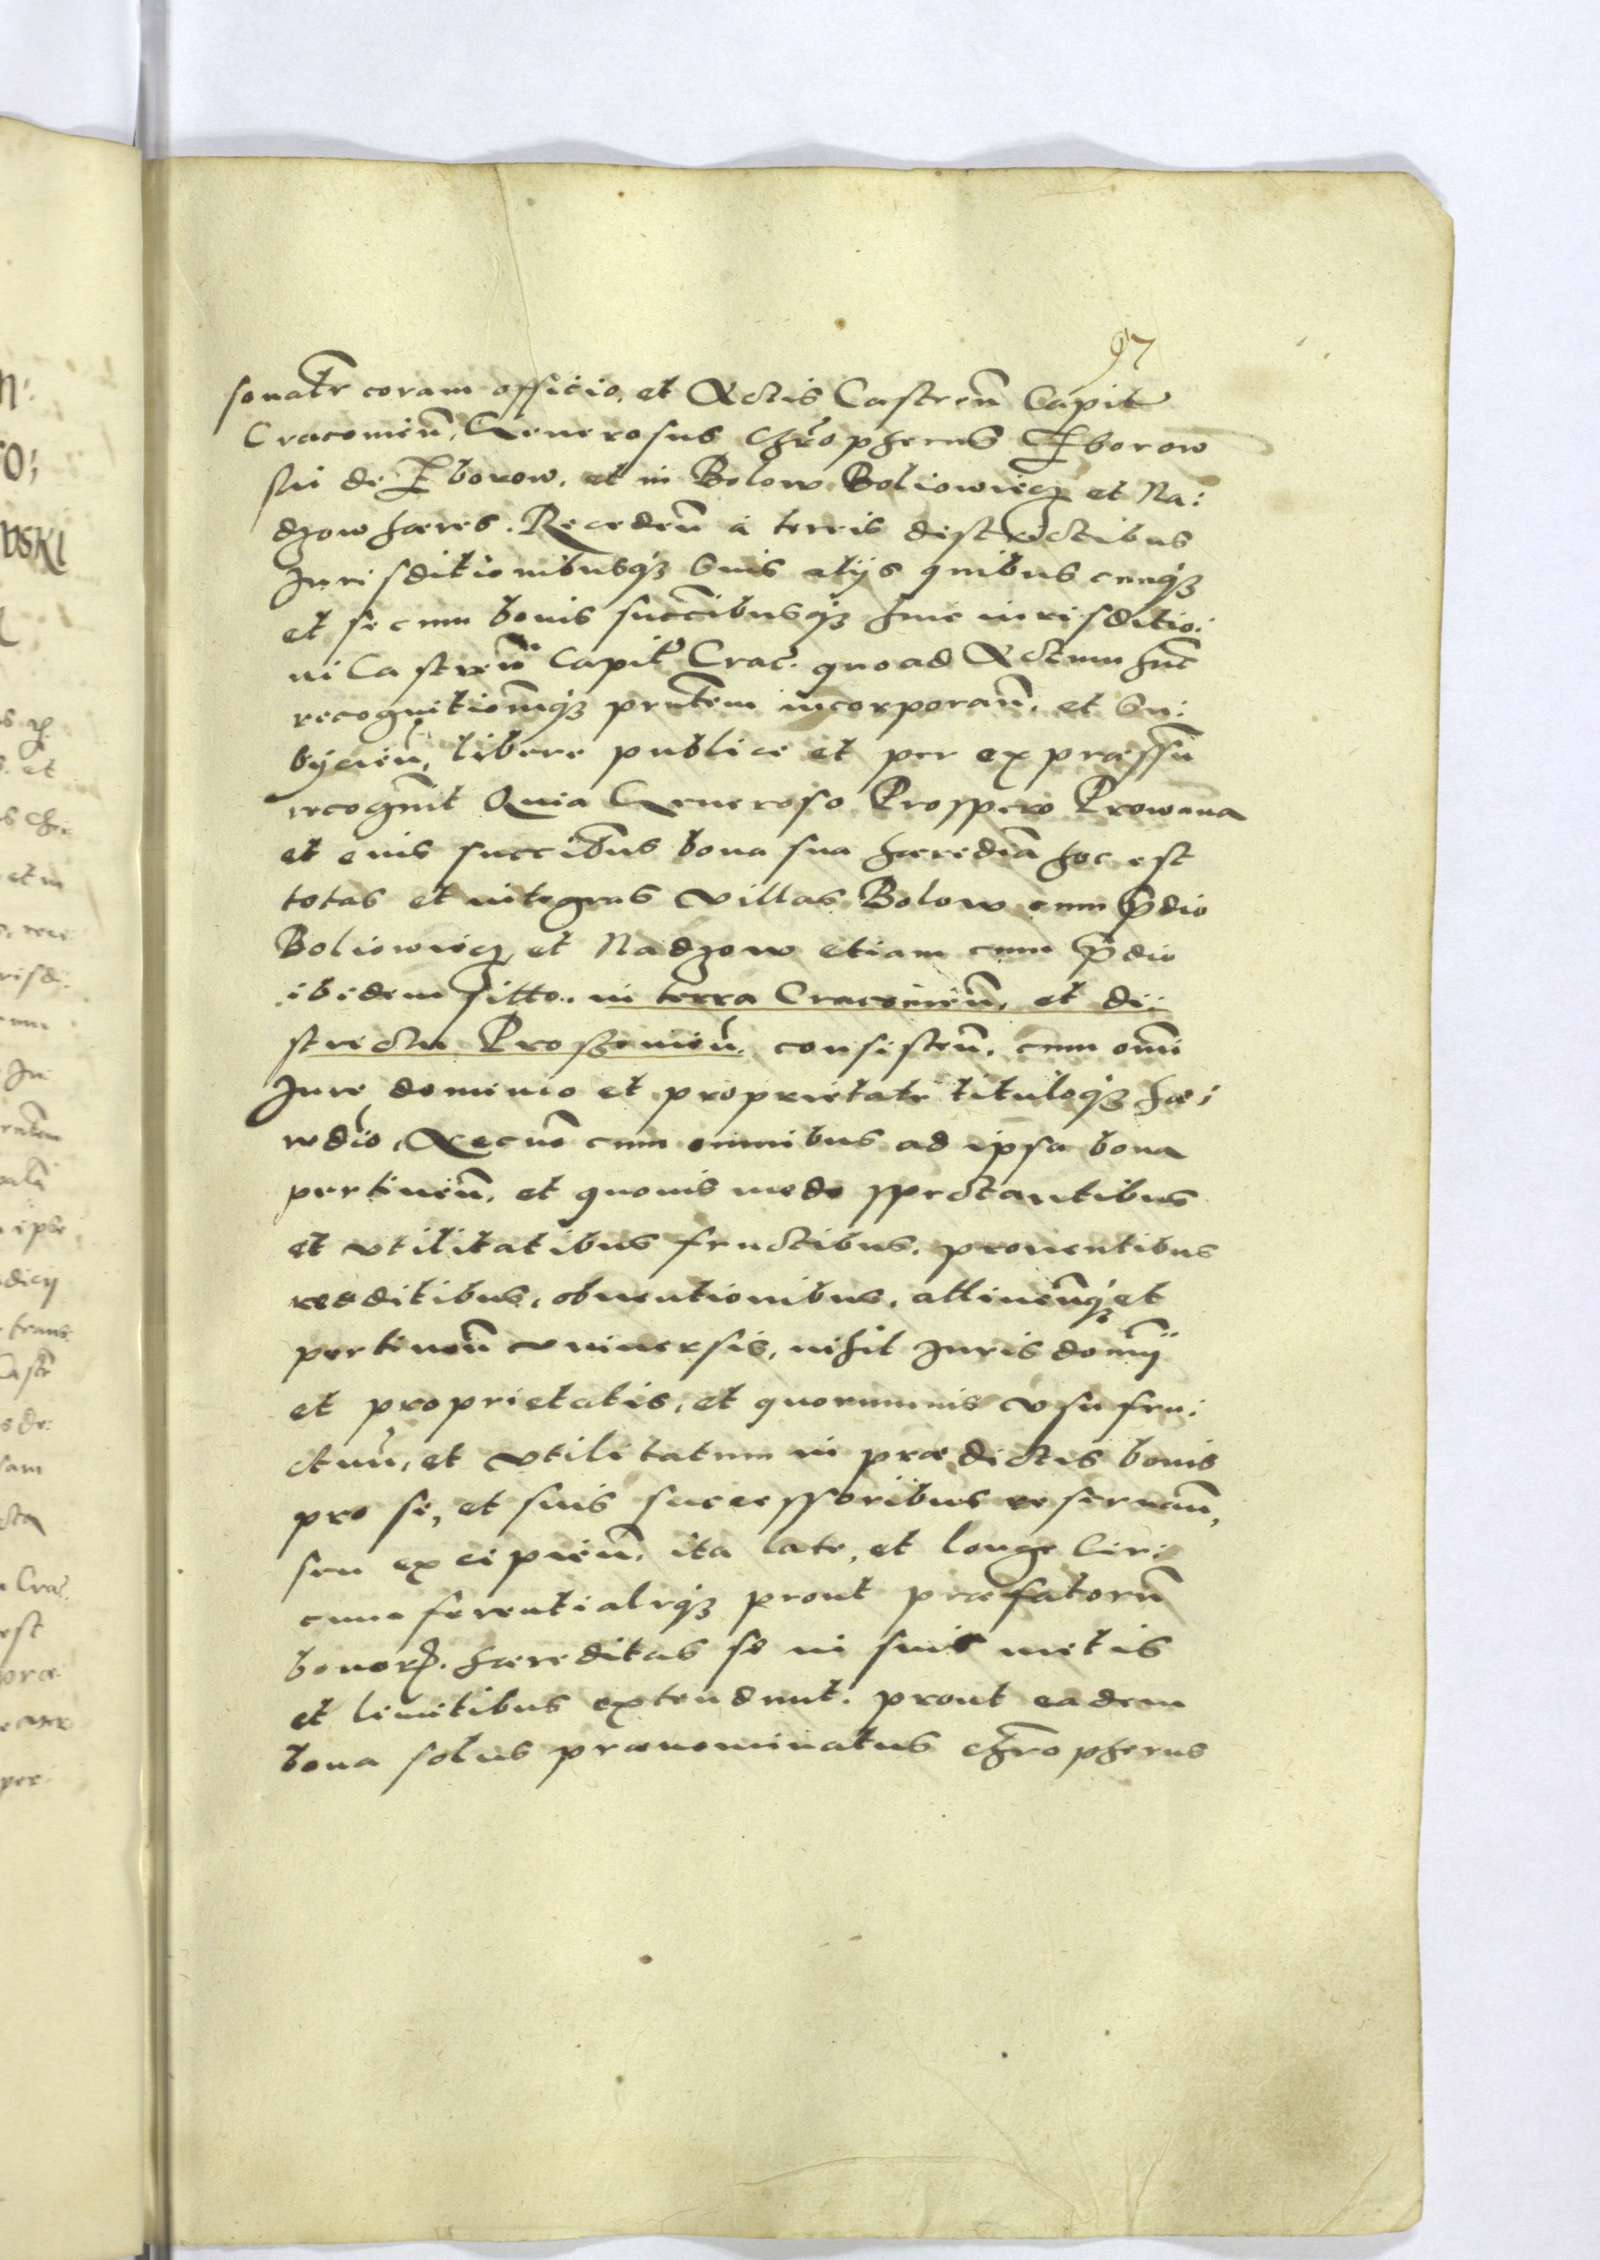 97
sonaľr coram officio, et Actis Castreñ Capit
Cracouień, Generosus Chrõpherus Zborow
ski de Zborow, et in Bolow Boliowiecz et Na:
dzow hæres. Recedeñ a terris districtibus
Jurisditionibusqȝ suis alijs quibus cunqȝ
et se cum bonis succibusqȝ huic iurisditio:
ni Castreñ Capit Crac. quoad Actum hũc
recognitionẽqȝ prñtem incorporañ, et su:
bÿcień, libere publice et per expræssũ
recognit Quia Generoso Prospero Prowana
et euis succibus bona sua hærediã hoc est
totas et integras villas Bolow cum p̃dio
Boliowiecz et Nadzow etiam cum p̃dio
ibidem sitto. in terra Cracouień, et di:
strictu Proszouień, consisteñ, cum omi
Jure dominio et proprietate tituloqȝ hæ:
redio, Ac cum omnibus ad ipsa bona
pertineñ, et quouis modo spectantibus
et vtilitatibus fructibus, prouentibus
redditibus, obuentionibus, attineñqȝ et
pertineñ vniuersis, nihil Juris domÿ
et proprietatis, et quorumuis vsufru:
ctuũ, et vtilitatum in prædictis bonis
pro se, et suis successoribus reseruañ,
seu excipień, ita late, et longe Cir:
cumferentialiqȝ prout præfatorũ
bonorꝝ hæreditas se in suis metis
et limitibus extendunt. prout eadem
bona solus prænominatus Chrõpherus